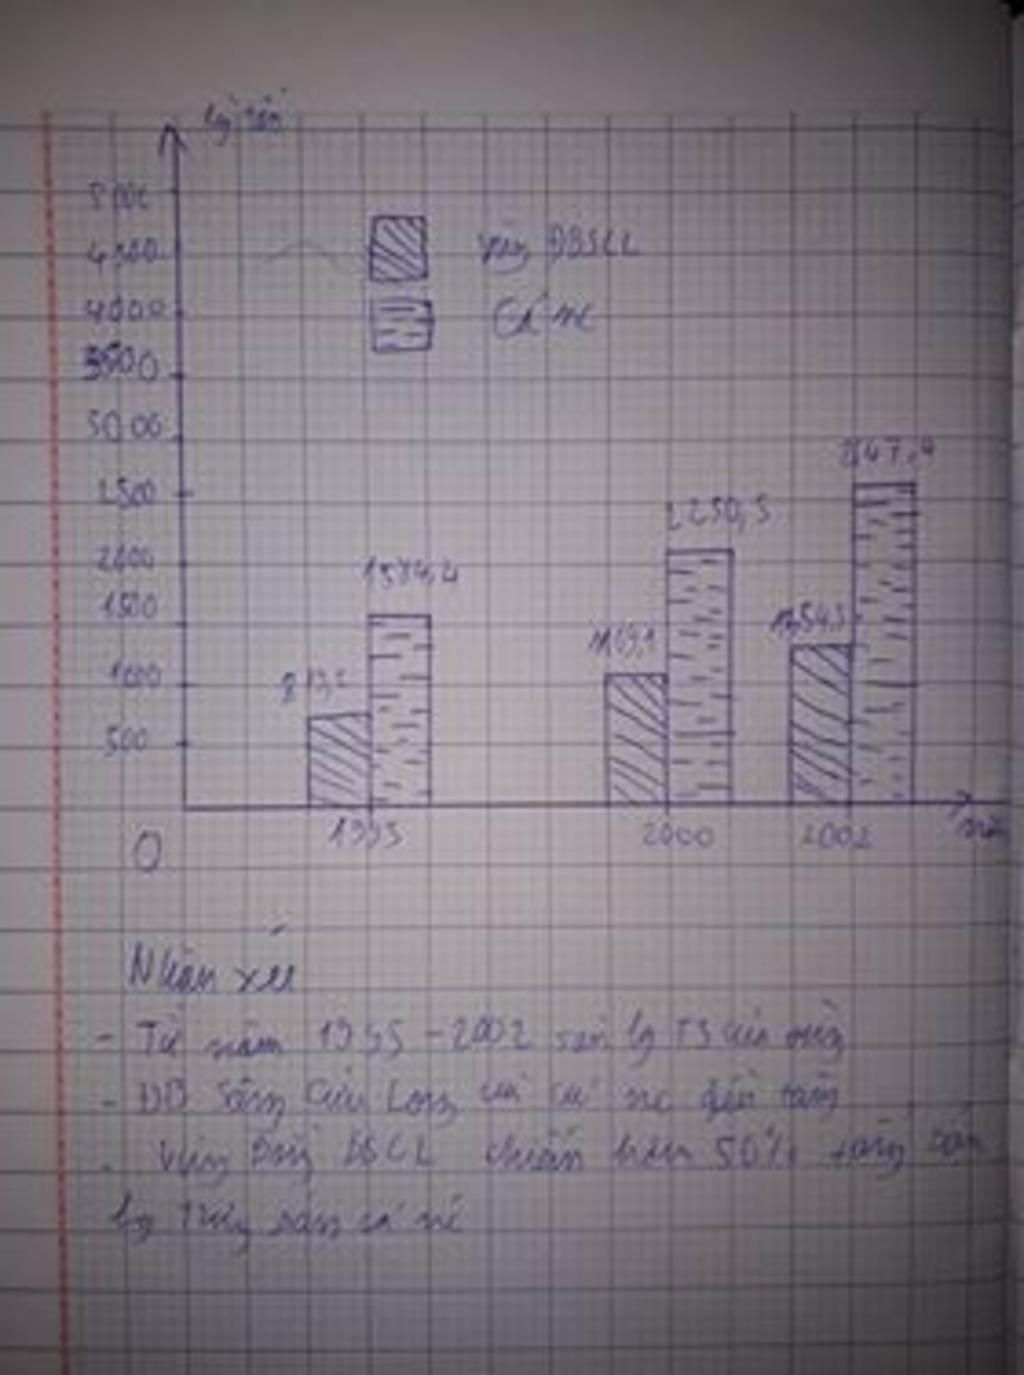 5000
4500
vùng ĐBSCL
4000
Cả nc
3500
5000
2647,4
2500
2250,5
2000
1584,4
1500
1169,1
1354,5
1000
819,2
500
1995
2000
2002
năm
0
Nhận xét
- Từ năm 1995 - 2002 sản lg TS của vùng
- ĐB Sông Cửu Long và cả nc đều tăng
Vùng ĐBSCL chiếm hơn 50% tổng sản
lg Thủy sản cả nc